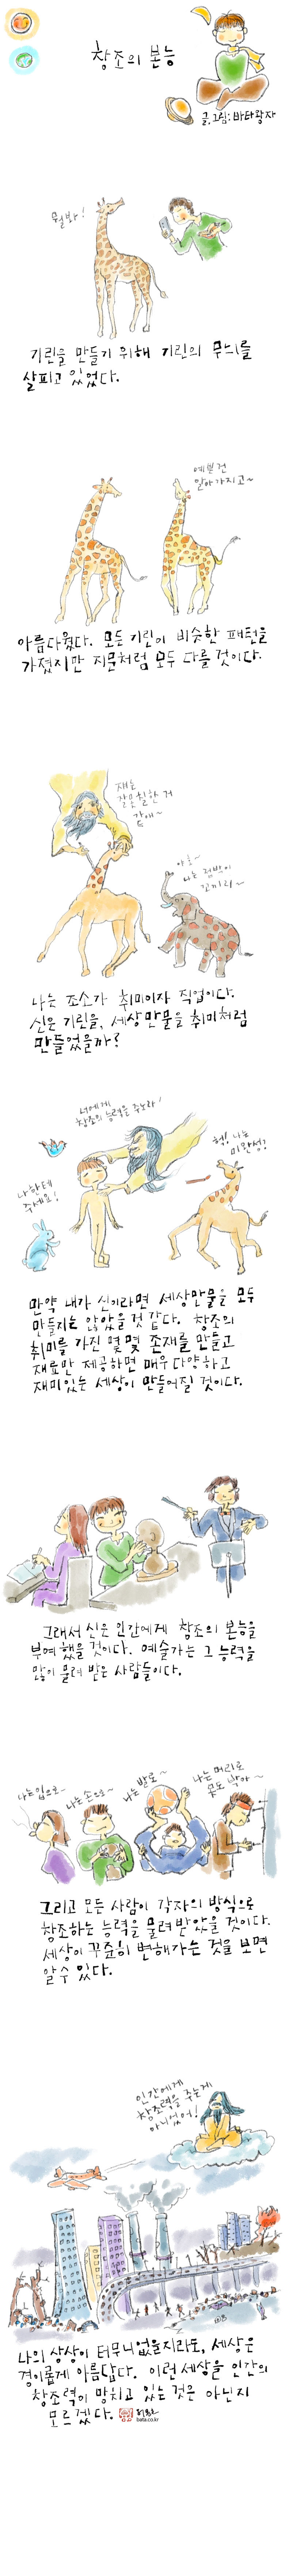 창조의 본능
글,그림:바타왕자
뭘봐!
기린을 만들기 위해 기린의 무늬를
살피고 있었다.
예쁜건
알아가지고~
아름다웠다. 모든 기린이 비슷한 패턴을
가졌지만 지문처럼 모두 다를 것이다.
쟤는
잘못칠한 거
같애~
야호~
나는 점박이
코끼리~
나는 조소가 취미이자 직업이다.
신은 기린을, 세상만물을 취미처럼
만들었을까?
너에게
창조의 능력을 주노라!
헉! 나는
미완성?
나한테
주세요!
만약 내가 신이라면 세상만물을 모두
만들지는 않았을 것 같다. 창조의
취미를 가진 몇몇 존재를 만들고
재료만 제공하면 매우 다양하고
재미있는 세상이 만들어질 것이다.
그래서 신은 인간에게 창조의 본능을
부여했을 것이다. 예술가는 그 능력을
많이 물려 받은 사람들이다.
나는 입으로~
나는 손으로~
나는 발로~
나는 머리로
못도 박아~
그리고 모든 사람이 각자의 방식으로
창조하는 능력을 물려받았을 것이다.
세상이 꾸준히 변해가는 것을 보면
알 수 있다.
인간에게
창조력을 주는게
아니었어!
나의 상상이 터무니없을지라도, 세상은
경이롭게 아름답다. 이런 세상을 인간의
창조력이 망치고 있는 것은 아닌지
모르겠다.
bata.co.kr